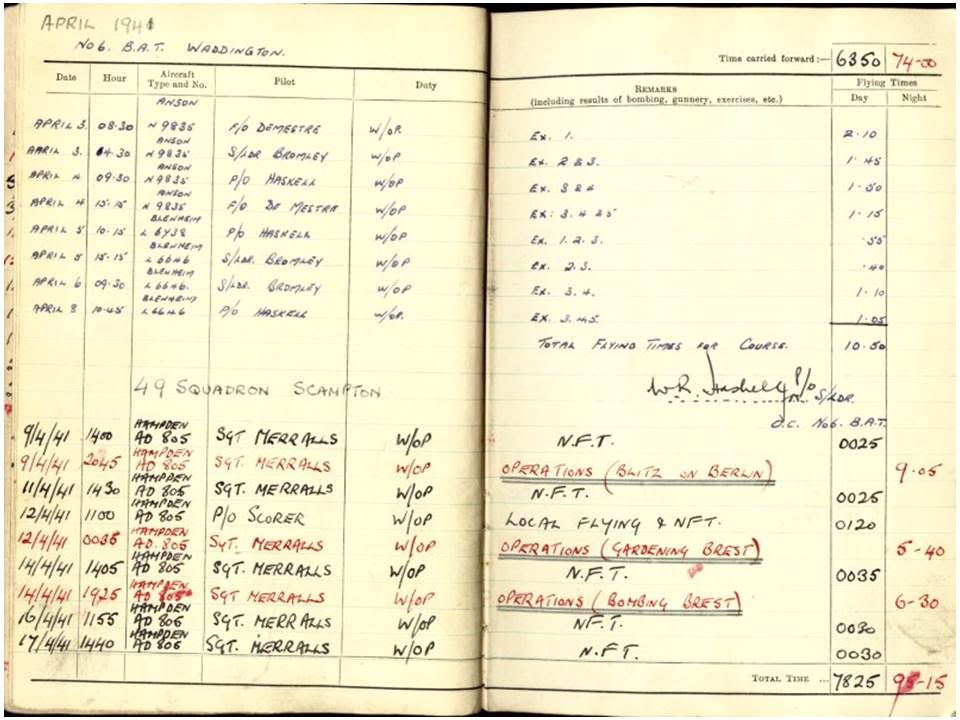 APRIL 1941
No6. B.A.T. WADDINGTON.
Time carried forward:— 6350 74-00
Date Hour Aircraft Type and No. Pilot Duty REMARKS (including results of bombing, gunnery, exercises, etc.) Flying Times Day Night
ANSON
APRIL 3. 08.30 N 9835 F/O DEMESTRE W/OP. Ex. 1. 2.10
ANSON
APRIL 3. 14.30 N 9835 S/LDR BROMLEY W/OP Ex. 2 & 3. 1.45
ANSON
APRIL 4 09.30 N 9835 P/O HASKELL W/OP Ex. 3 & 4 1.50
ANSON
APRIL 4 15.15 N 9835 F/O DE MESTRE W/OP Ex: 3. 4 & 5 1.15
BLENHEIM
APRIL 5 10.15 P/O HASKELL W/OP Ex. 1. 2. 3. .55
BLENHEIM
APRIL 5 15.15 L 6646 S/LDR. BROMLEY W/OP Ex. 2. 3. .40
BLENHEIM
APRIL 6 09.30 L 6646. S/LDR. BROMLEY W/OP Ex. 3. 4. 1.10
BLENHEIM
APRIL 8 10.45 L 6646 P/O HASKELL W/OP. Ex. 3. 4.5. 1.05
TOTAL FLYING TIMES FOR COURSE. 10.50
49 SQUADRON SCAMPTON
W.R. Haskell P/O
S/LDR.
O.C. No6. B.A.T.
HAMPDEN
9/4/41 1400 AD 805 SGT MERRALLS W/OP N.F.T. 0025
HAMPDEN
9/4/41 2045 AD 805 SGT. MERRALLS W/OP OPERATIONS (BLITZ ON BERLIN) 9.05
HAMPDEN
11/4/41 1430 AD 805 SGT. MERRALLS W/OP N.F.T. 0025
HAMPDEN
12/4/41 1100 AD 805 P/O SCORER W/OP LOCAL FLYING & NFT. 0120
HAMPDEN
12/4/41 0035 AD. 805 SGT. MERRALLS W/OP OPERATIONS (GARDENING BREST) 5-40
HAMPDEN
14/4/41 1405 AD 805 SGT. MERRALLS W/OP N.F.T. 0035
HAMPDEN
14/4/41 1925 AD 805 SGT MERRALLS W/OP OPERATIONS (BOMBING BREST) 6-30
HAMPDEN
16/4/41 1155 AD 805 SGT. MERRALLS W/OP NF.T. 0030
HAMPDEN
17/4/41 1440 AD 805 SGT. MERRALLS W/OP N.F.T. 0030
TOTAL TIME ... 7825 95-15